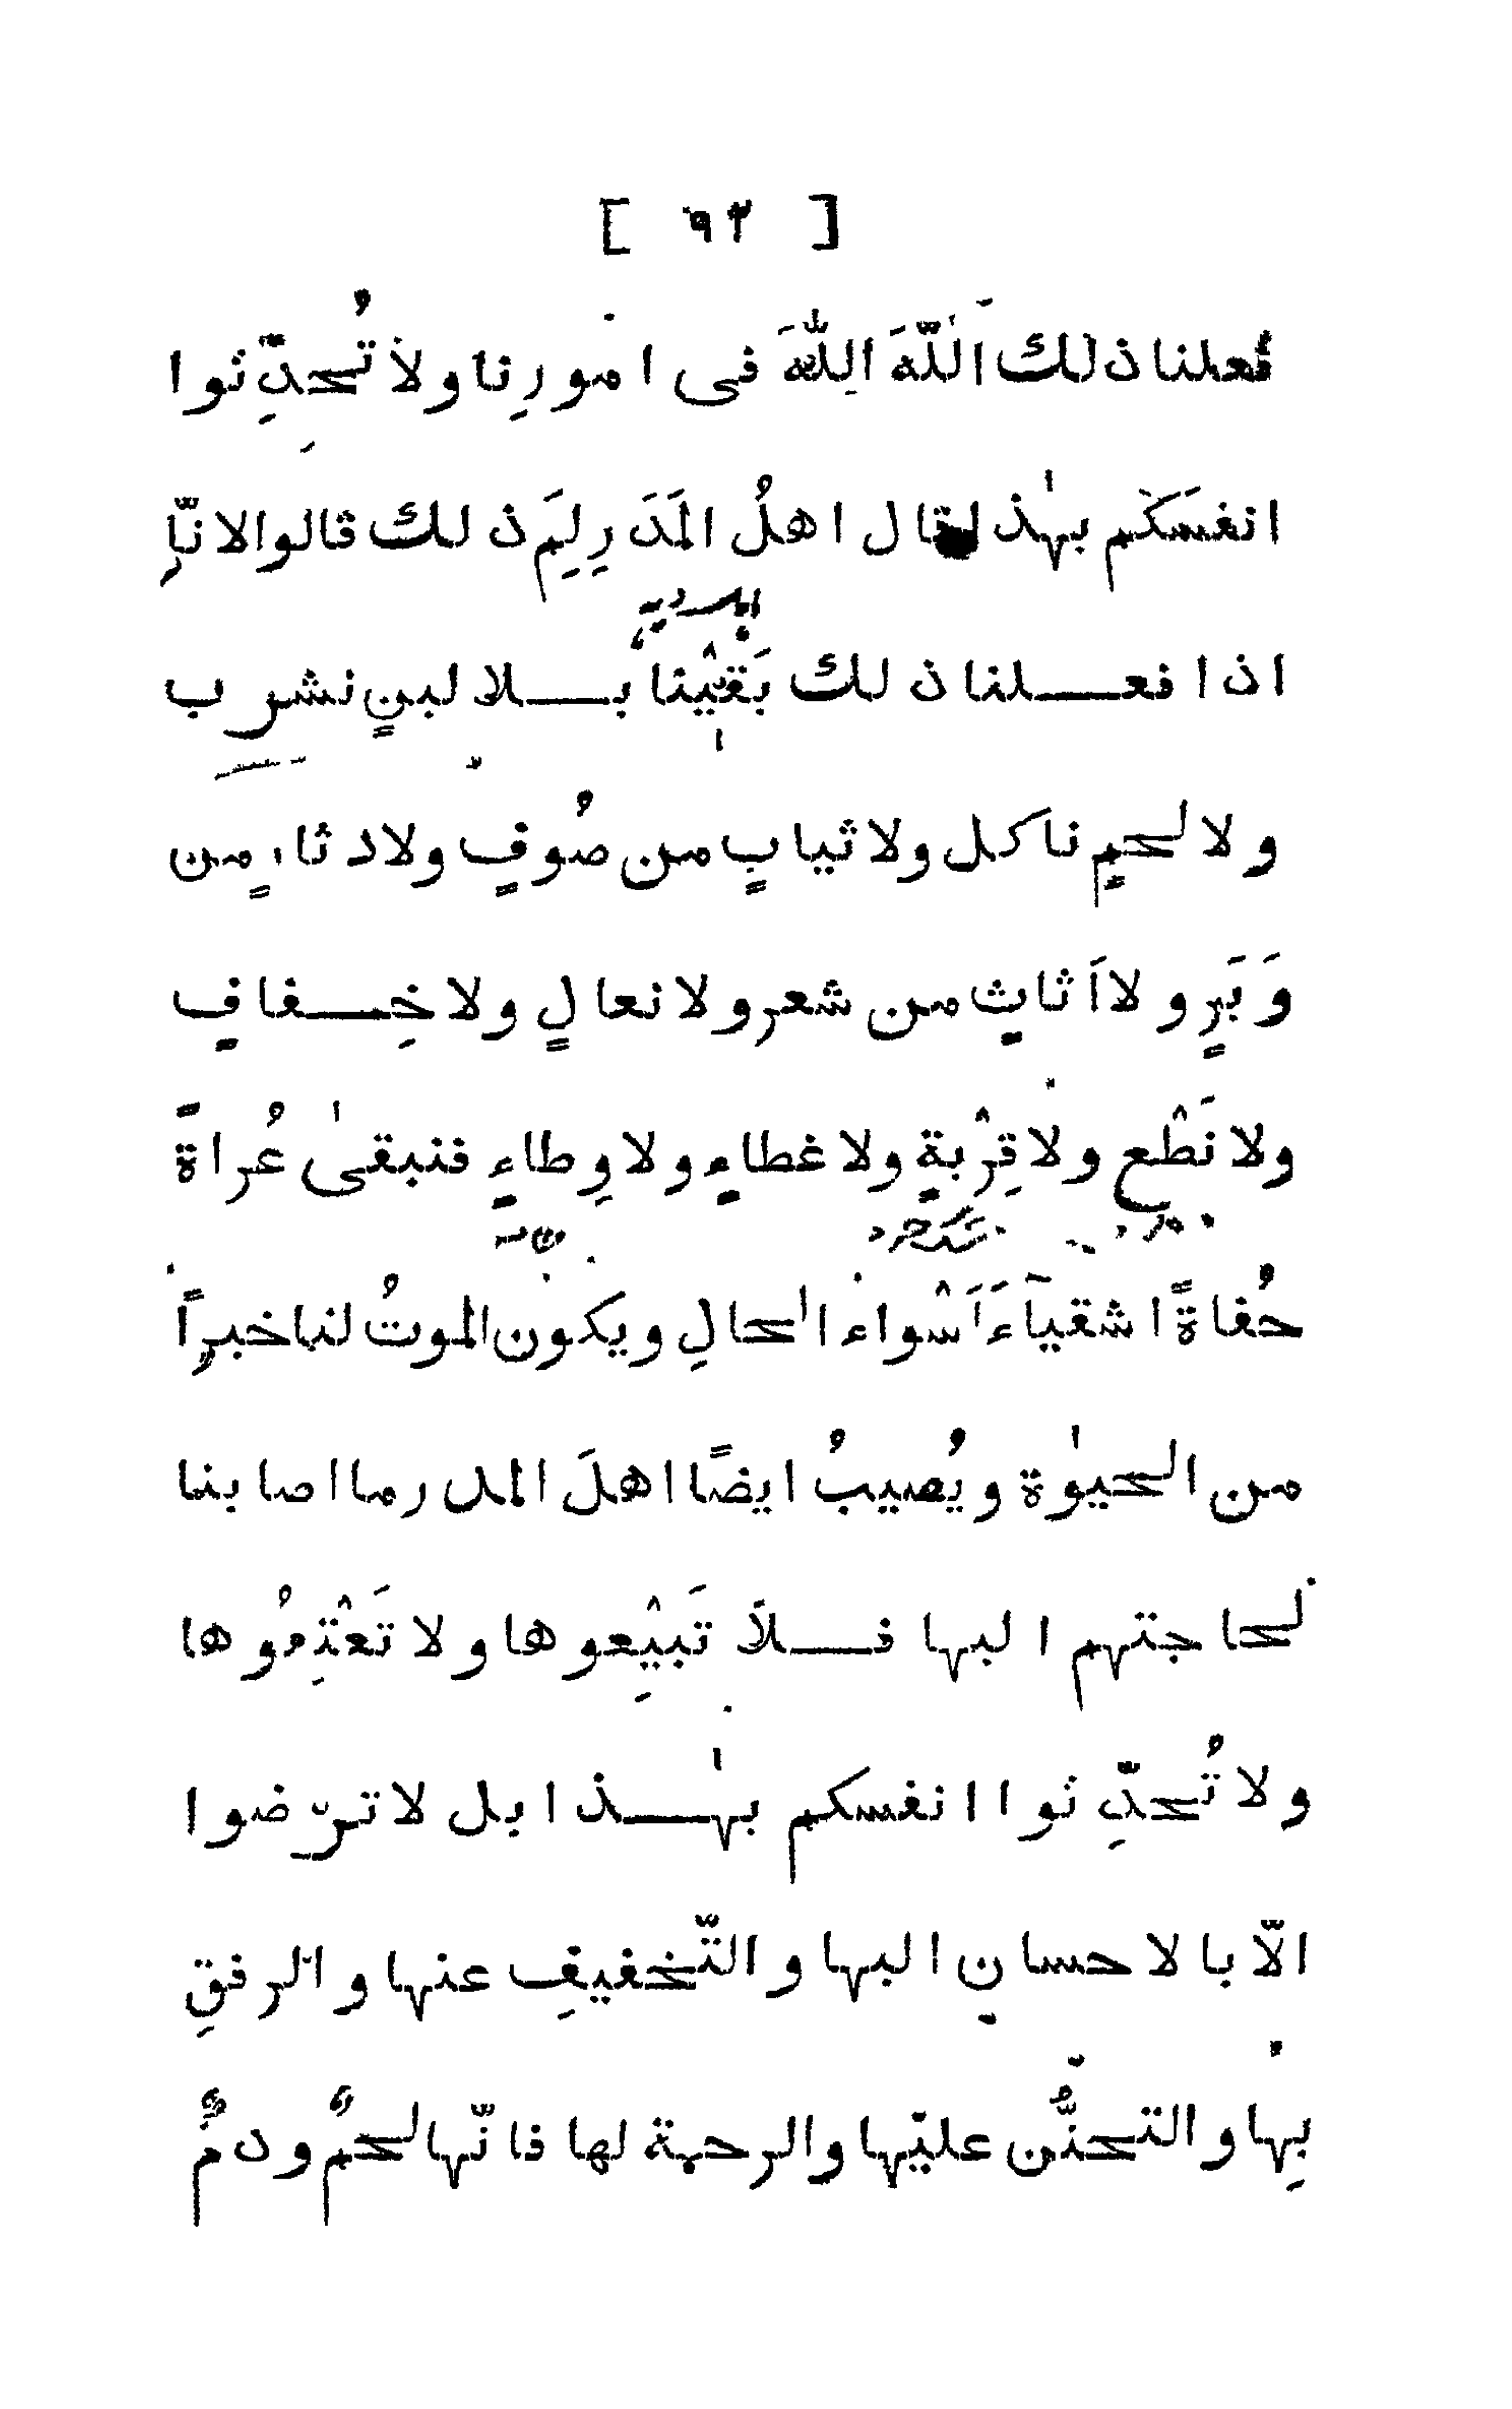 [ ٩٣ ]
فعلنا ذلك اَللّٰهَ اَللّٰهَ فى امورِنا ولا تُحدِّثوا
انفسَكم بهٰذا قال اهلُ المَدَرِ لِمَ ذلك قالوا لانّا
اذا فعلنا ذلك بَقَيْنا بلا لبنٍ نشرب
ولا لحمٍ ناكل ولا ثيابٍ من صُوفٍ ولا دثارٍ من
وَبَرٍ ولا اَثاثٍ من شعر ولا نعالٍ ولا خِفافٍ
ولا نَطْعٍ ولا قِرْبةٍ ولا غطاءٍ ولا وِطاءٍ فنبقىٰ عُراةً
حُفاةً اشقيآءَ اَسْواءَ الحالِ ويكون الموتُ لنا خيراً
من الحيوٰة ويُصيبُ ايضًا اهلَ المدر ما اصابنا
لحاجتهم اليها فلا تَبيْعوها ولا تَعْتِقُوها
ولا تُحدِّثوا انفسكم بهٰذا بل لا ترضوا
الّا بالاحسانِ اليها والتّخفيفِ عنها والرفقِ
بِها والتحنُّن عليها والرحمة لها فانّها لحمٌ ودمٌ